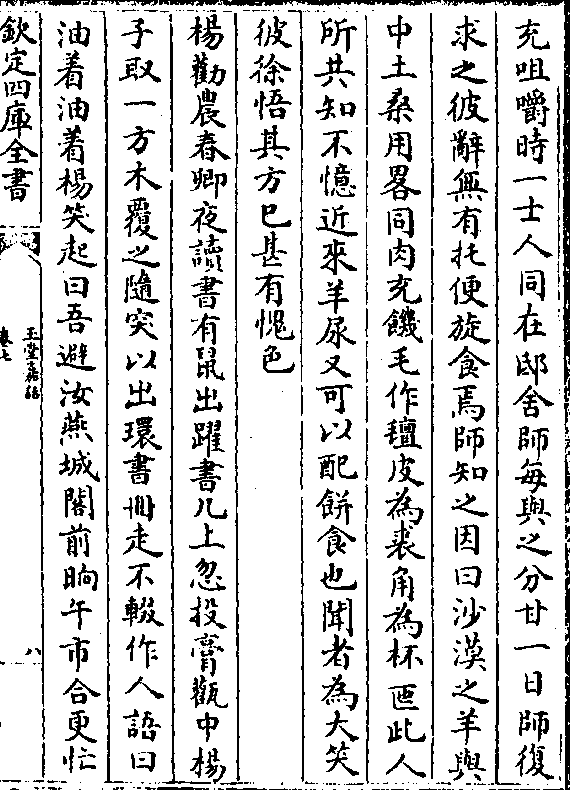 充咀嚼時一士人同在邸舍師每與之分甘一日師復
求之彼辭無有托便旋食焉師知之因曰沙漠之羊與
中土桑用畧同肉充饑毛作氊皮為裘角為杯匜此人
所共知不憶近來羊尿又可以配餅食也聞者為大笑
彼徐悟其方已甚有愧色
楊勸農春卿夜讀書有鼠出躍書几上忽投膏甌中楊
子取一方木覆之隨突以出環書冊走不輟作人語曰
油着油着楊笑起曰吾避汝燕城閣前晌午市合更忙
欽定四庫全書
玉堂嘉話
卷七
八